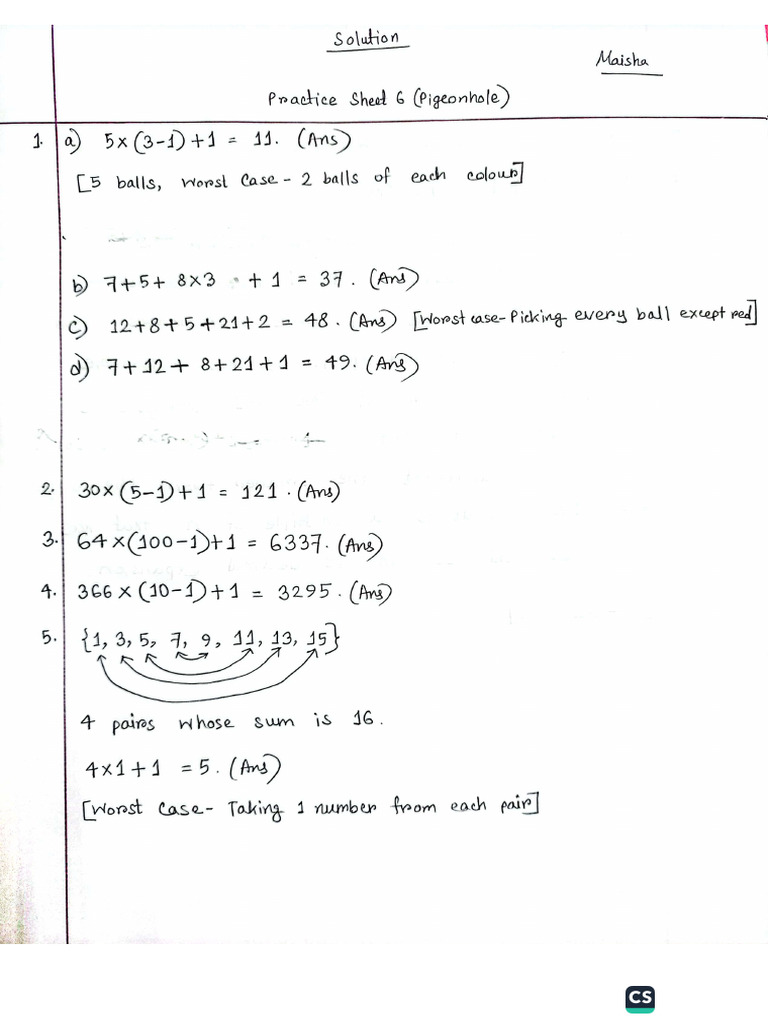 Solution
Maisha
Practice Sheet 6 (Pigeonhole)
1. a) 5×(3-1)+1 = 11. (Ans)
[5 balls, Worst Case - 2 balls of each colour]
b) 7+5+ 8×3 + 1 = 37. (Ans)
c) 12+8+5+21+2 = 48. (Ans) [Worst case-Picking every ball except red]
d) 7+12+ 8+21+1 = 49. (Ans)
2. 30×(5-1)+1 = 121. (Ans)
3. 64×(100-1)+1 = 6337. (Ans)
4. 366×(10-1)+1 = 3295. (Ans)
5. {1, 3, 5, 7, 9, 11, 13, 15}
4 pairs whose sum is 16.
4×1+1 = 5. (Ans)
[Worst Case- Taking 1 number from each pair]
CS